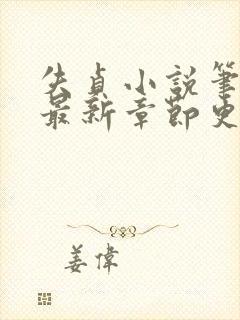 失貞小說筆
最新章節更
姜偉